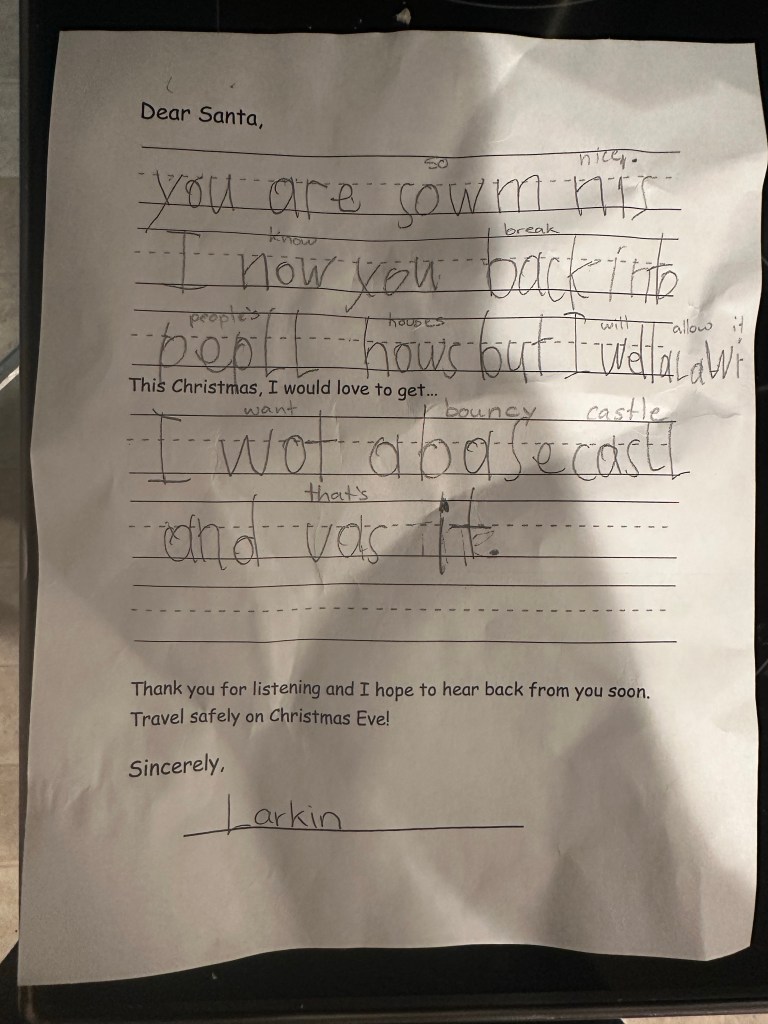 Dear Santa,
so nice.
you are sowm nis
know break
I now you back into
people's houses will allow it
pepll hows but I well alawi
This Christmas, I would love to get...
want bouncy castle
I wot a base castl
that's
and vas it.
Thank you for listening and I hope to hear back from you soon.
Travel safely on Christmas Eve!
Sincerely,
Larkin